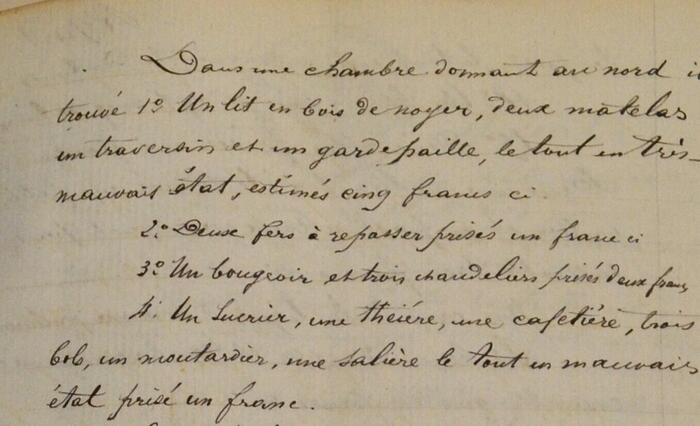 Dans une chambre donnant au nord i
trouvé 1º Un lit en bois de noyer, deux matelas
un traversin et un garde paille, le tout en très-
mauvais état, estimés cinq francs ci.
2º Deux fers à repasser prisés un franc ci
3º Un bougeoir et trois chandeliers prisés deux francs
4º Un sucrier, une théiére, une cafétière, trois
bob, un moutardier, une salière le tout en mauvais
état prisé un franc.